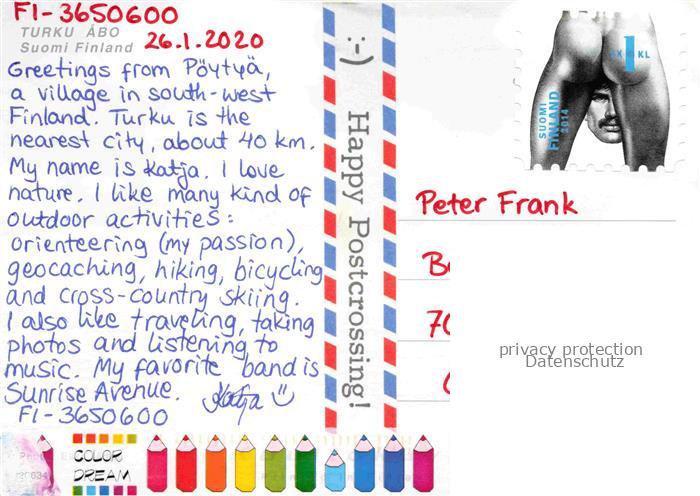 FI-3650600
TURKU ÅBO
Suomi Finland
26.1.2020
Greetings from Pöytyä,
a village in south-west
Finland. Turku is the
nearest city, about 40 km.
My name is Katja. I love
nature. I like many kind of
outdoor activities:
orienteering (my passion),
geocaching, hiking, bicycling
and cross-country skiing.
I also like traveling, taking
photos and listening to
music. My favorite band is
Sunrise Avenue. Katja
FI-3650600
:-) Happy Postcrossing!
1
KL
SUOMI
FINLAND
2014
Peter Frank
70
privacy protection
Datenschutz
COLOR
DREAM